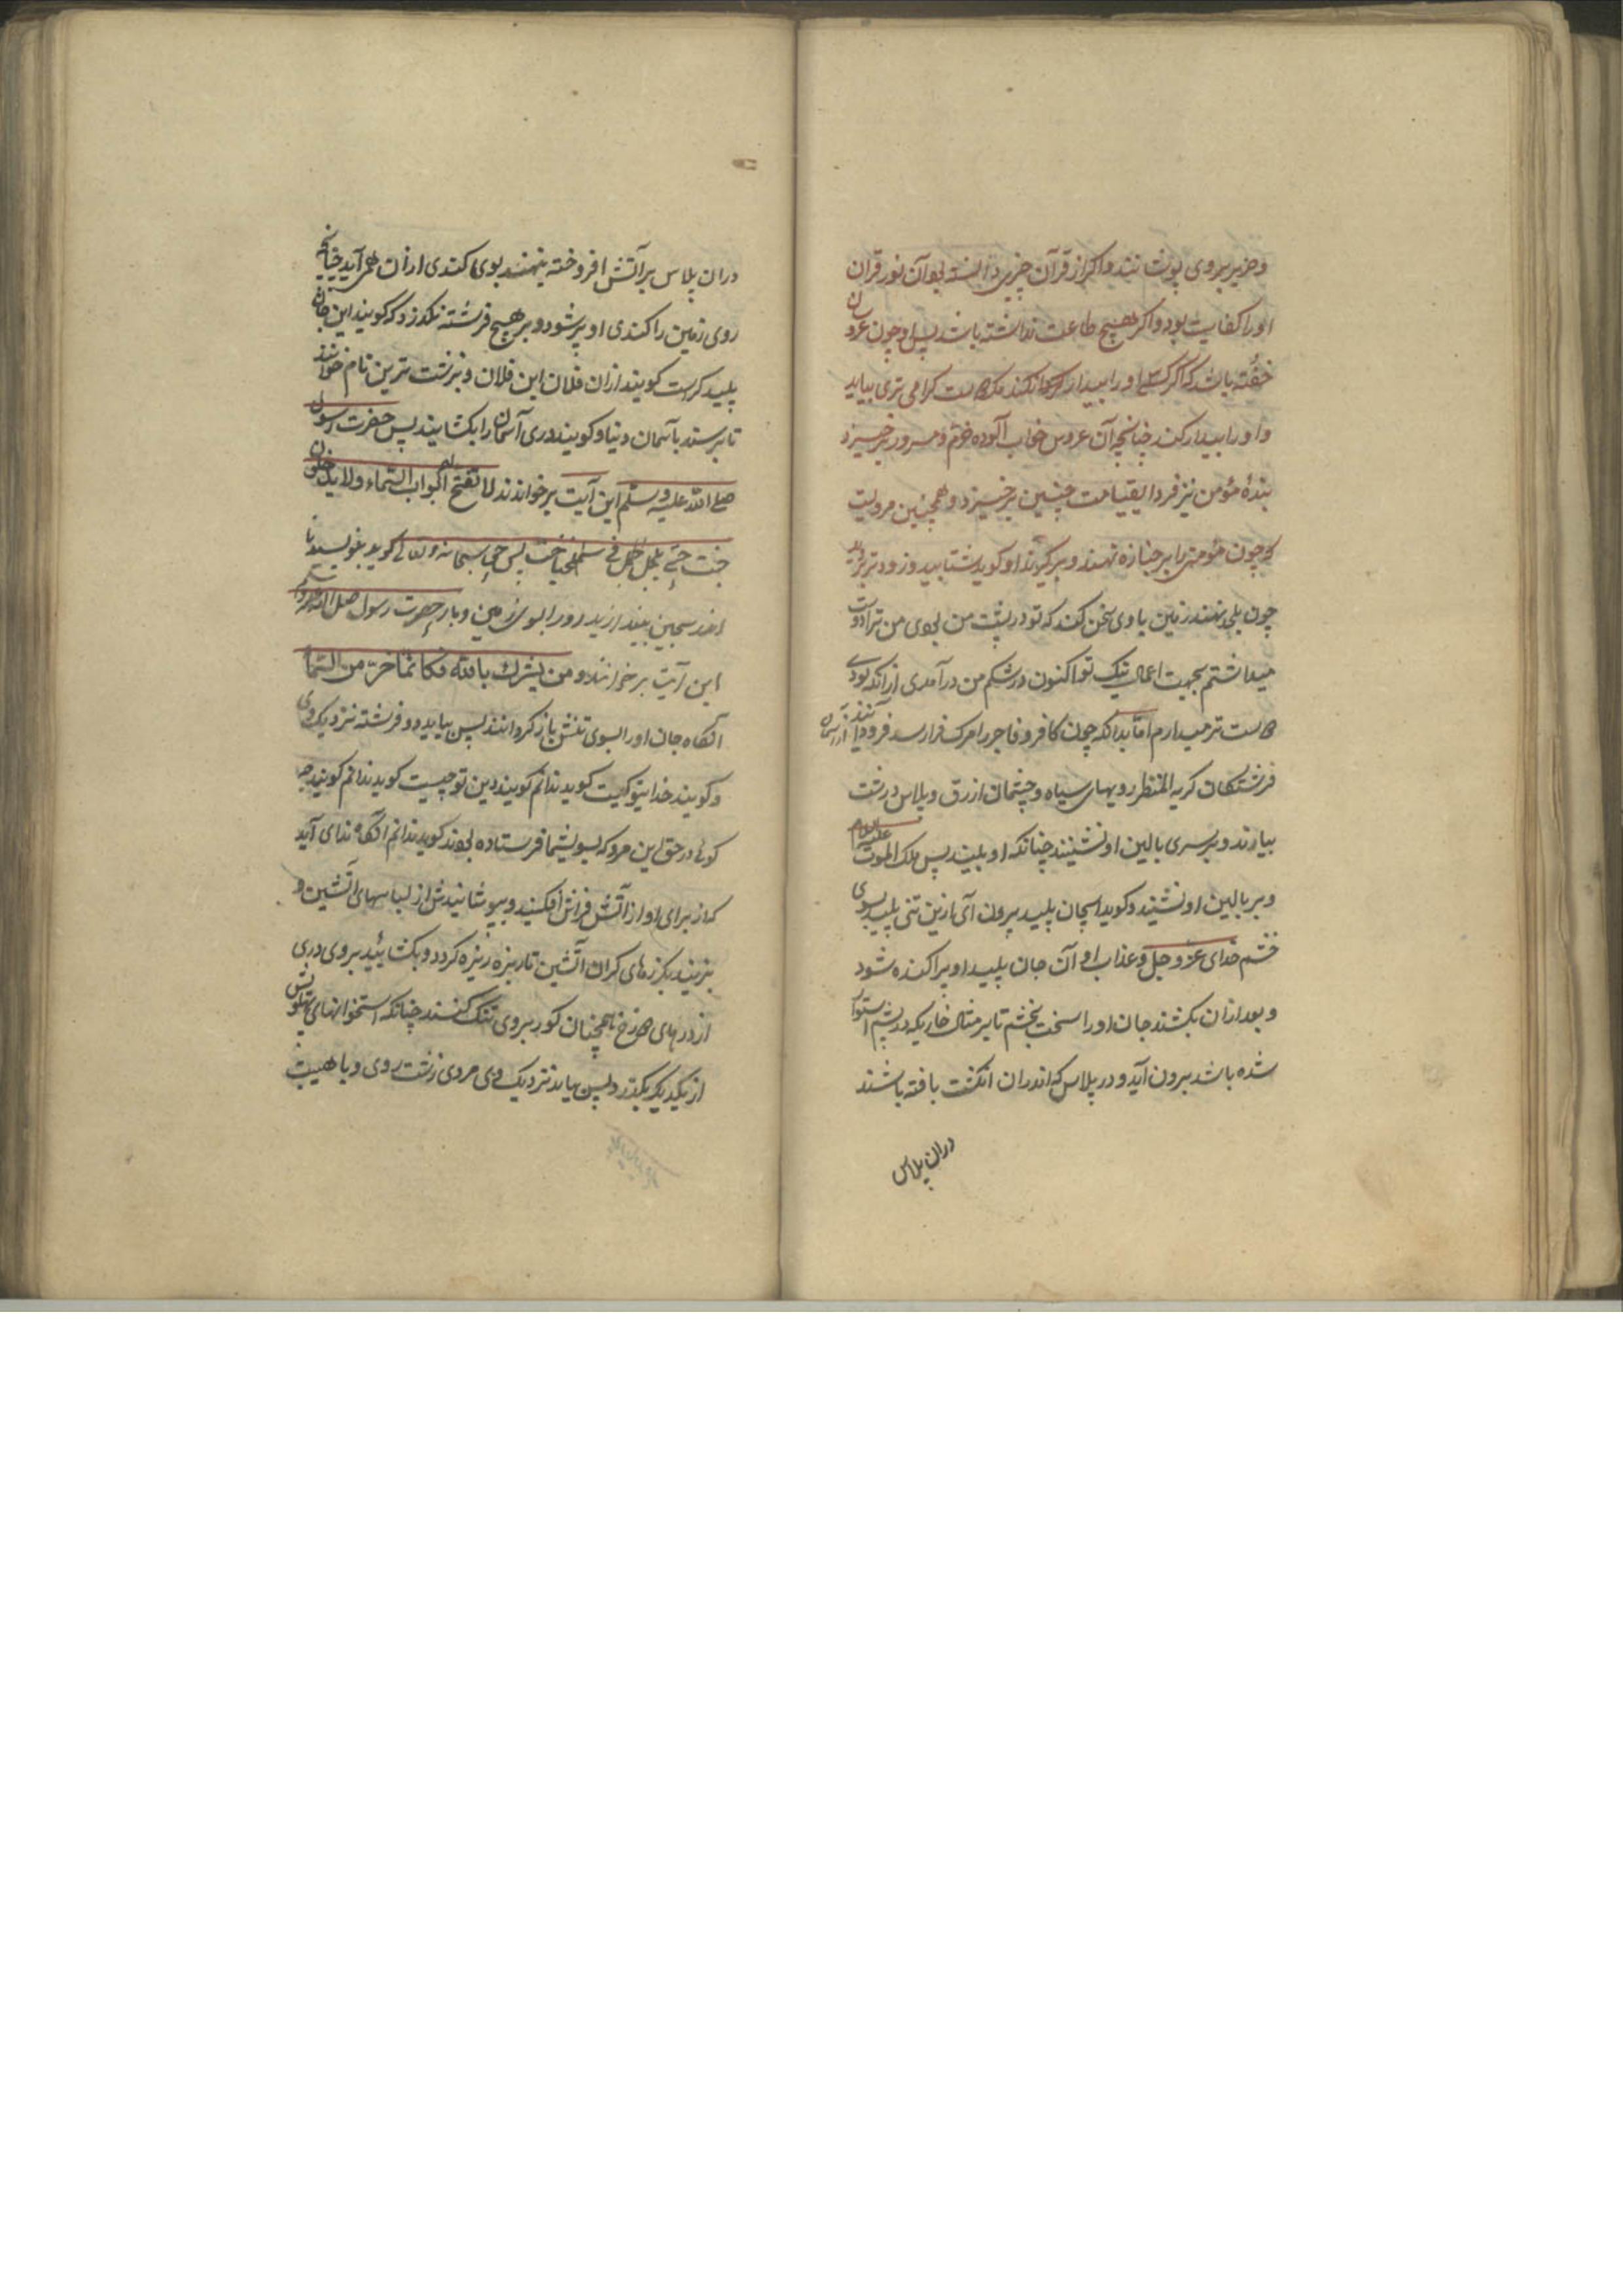 و حریر بروی پوشند و اکر از قرآن چیزی دانسته بود آن نور قرآن
او را کفایت بود و اکر هیچ طاعت نداشته باشد پس او چون عروسان
خفته باشد که اکر کسی او را بیدار نکند مکر دوست کرامی تری بیاید
و او را بیدار کند چنانچه آن عروس خواب آلوده خرم و مسرور برخیزد
بندهٔ مؤمن نیز فردا بقیامت چنین برخیزد و همچنین مرویست
که چون مؤمن را بر جنازه نهند و برکیرند او کوید بشتابید و زودتر برید
چون بلحد نهند زمین با وی سخن کند که تو در پشت من بودی من ترا دوست
میداشتم بجهت اعمال نیک تو اکنون در شکم من درآمدی از آنکه بودی
دوست تر میدارم اما بدانکه چون کافر و فاجر را مرک فرا رسد فرود آیند از آسمان
فرشتکان کریه المنظر رویهای سیاه و چشمان ازرق و پلاس درشت
بیارند و بر سری بالین او نشینند چنانکه او بیند پس ملک الموت علیه السلام
و بر بالین او نشیند و کوید ای جان پلید بیرون آی ازین تنی پلید بسوی
خشم خدای عز و جل و عذاب او آن جان پلید او پراکنده شود
و بعد از آن بکشند جان او را سخت بخشم تا بر مثال خاریکه در پشم استوار
شده باشد بیرون آید و در پلاس که اندران انکشت بافته باشند
دران پلاس
دران پلاس بر آتش افروخته بنهند بوی کندی از آن همی آید چنانچه
روی زمین را کندی او پر شود و بر هیچ فرشته نکذرد که کویند این جان
پلید کراست کویند ازان فلان ابن فلان و بزشت ترین نام خوانند
تا برسند بآسمان دنیا و کویند دری آسمان را بکشایند پس حضرت رسول
صلی الله علیه و سلم این آیت برخواندند لا تفتح لهم ابواب السماء ولا یدخلون
جنت حتی یلج الجمل فی سم الخیاط پس حق سبحانه و تعالی کوید بنویسید تا
اندر سجین بیندازید او را بسوی زمین و باز حضرت رسول صلی الله علیه و سلم
این آیت برخوانند و من یشرک بالله فکانما خر من السماء
آنکاه جان او را بسوی تنش باز کردانند پس بیاید دو فرشته نزدیک وی
و کویند خدایتو کیست کوید ندانم کویند دین تو چیست کوید ندانم کویند چه
کوئی در حق این مرد که بسوی شما فرستاده بودند کوید ندانم آنکاه ندای آید
که از برای او از آتش فراش افکنید و بپوشانیدش از لباسهای آتشین و
بزنید بکرزهای کران آتشین تا ریزه ریزه کردد و بکشائید بروی دری
از درهای دوزخ تا همچنان کور بروی تنک کنند چنانکه استخوانهای پهلوش
از یکدیکر بکذرد پس بیاید نزدیک وی مردی زشت روی و با هیبت